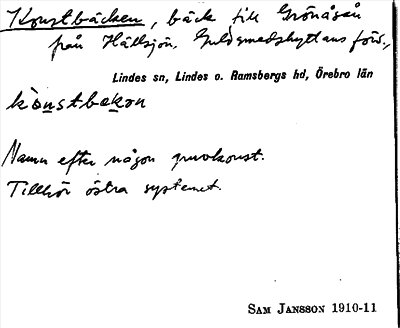 Konstbäcken, bäck till Grönåsån
från Hällsjön, Guldsmedshyttans förs.,
Lindes sn, Lindes o. Ramsbergs hd, Örebro län
kònstbekon
Namn efter någon gruvkonst.
Tillhör östra systemet.
SAM JANSSON 1910-11